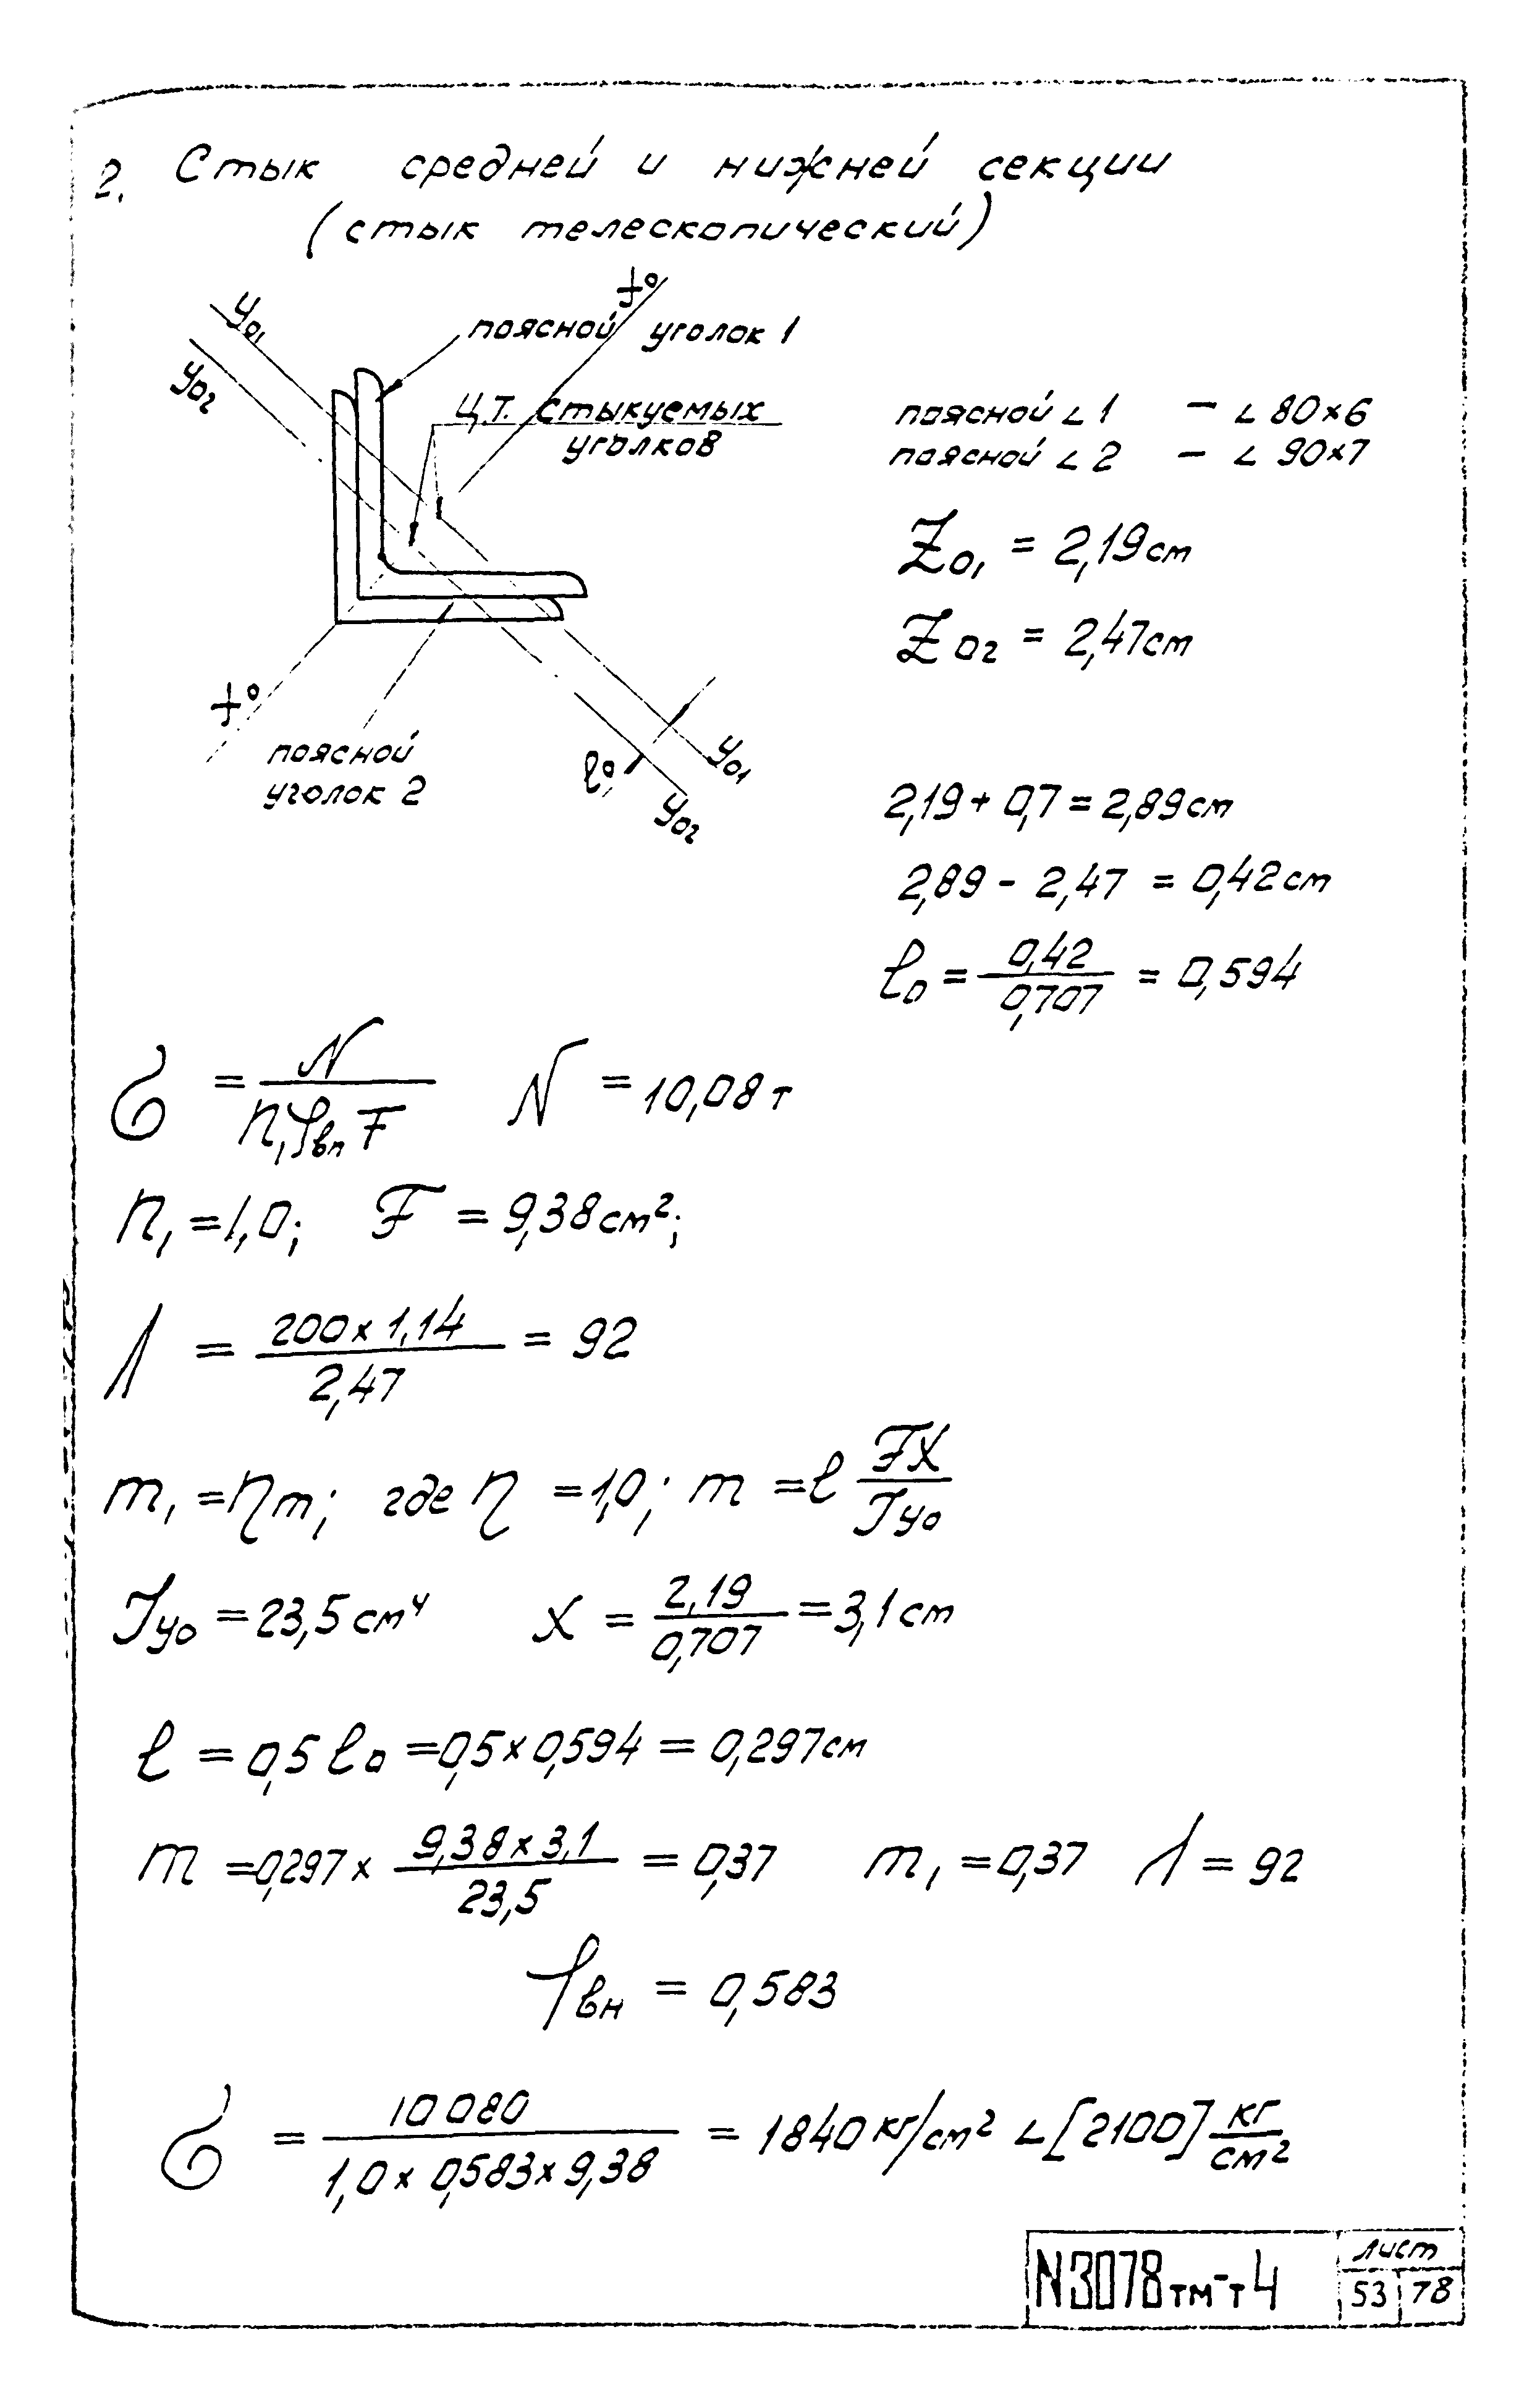 2. Стык средней и нижней секции
(стык телескопический)
y01
y02
x0
поясной уголок 1
Ц.Т. стыкуемых
уголков
x0
поясной
уголок 2
l0
y01
y02
поясной ∠ 1 – ∠ 80×6
поясной ∠ 2 – ∠ 90×7
Z01 = 2,19см
Z02 = 2,47см
2,19 + 0,7 = 2,89см
2,89 - 2,47 = 0,42см
l0 = 0,42 / 0,707 = 0,594
σ = N / n1 φвп F N = 10,08 т
n1 = 1,0; F = 9,38 см²;
λ = 200 × 1,14 / 2,47 = 92
m1 = ηm; где η = 1,0; m = l FX / Jy0
Jy0 = 23,5 см⁴ X = 2,19 / 0,707 = 3,1 см
l = 0,5 l0 = 0,5 × 0,594 = 0,297см
m = 0,297 × 9,38 × 3,1 / 23,5 = 0,37 m1 = 0,37 λ = 92
φвн = 0,583
σ = 10080 / 1,0 × 0,583 × 9,38 = 1840 кг/см² ∠ [2100] кг / см²
N3078тм-т4
лист
53 78